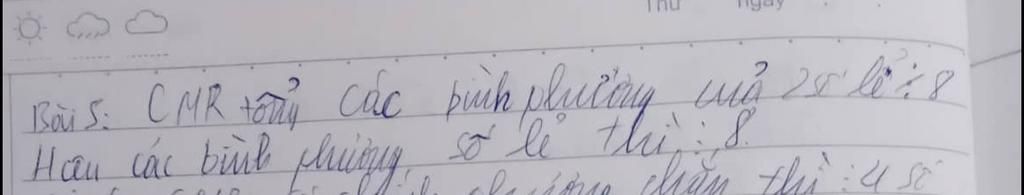 Thứ ngày
Bài 5: CMR tổng các bình phương của 2 số lẻ ⋮ 8
Hiệu các bình phương số lẻ thì ⋮ 8.
phương chẵn thì ⋮ 4 số